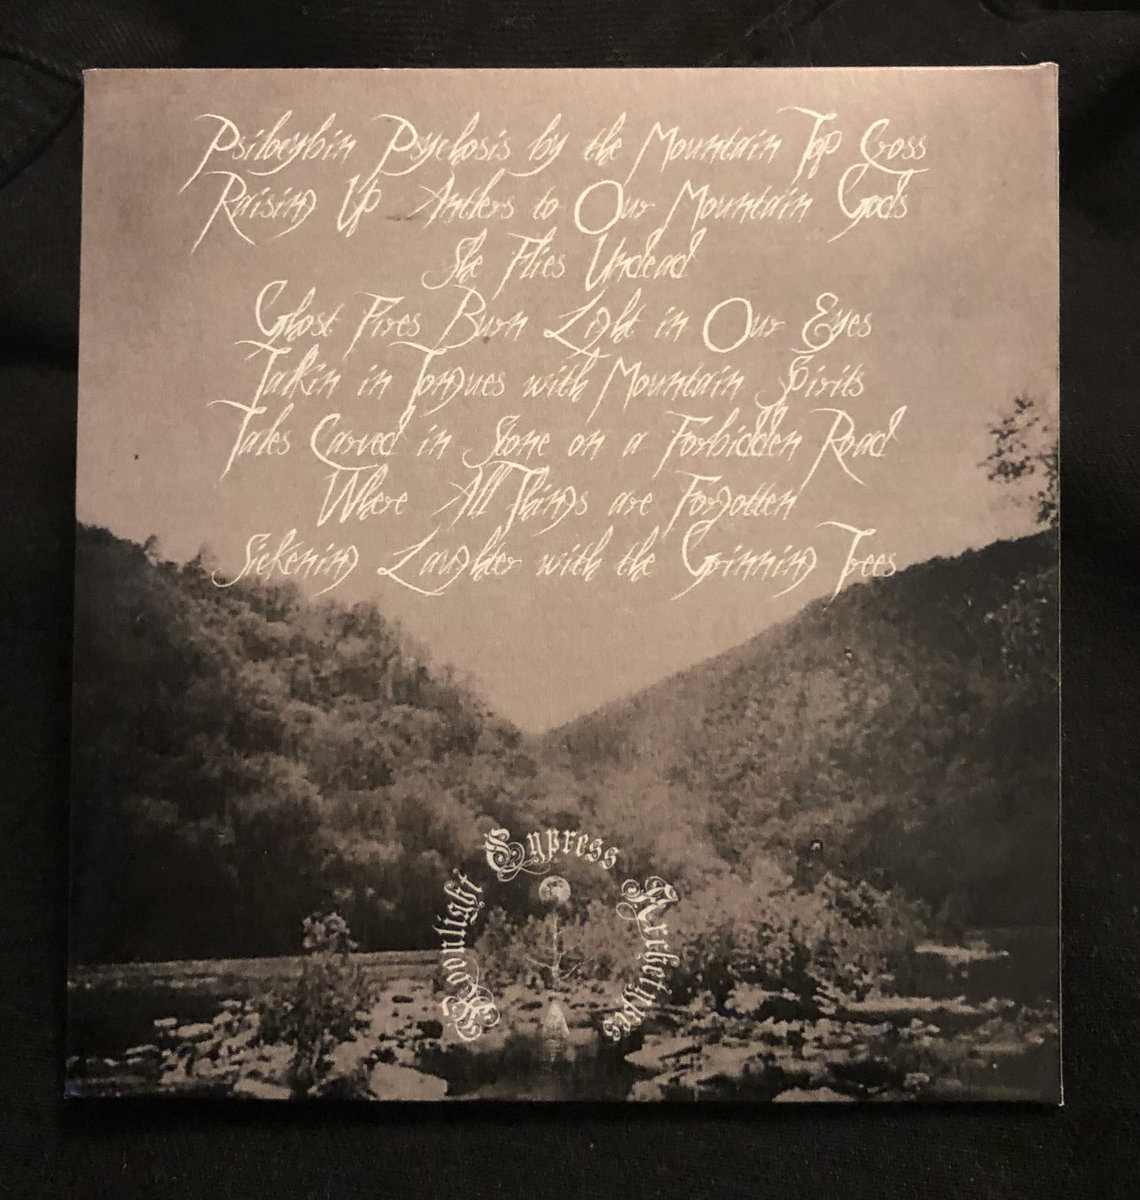 Psilocybin Psychosis by the Mountain Top Cross
Raising Up Antlers to Our Mountain Gods
She Flies Undead
Ghost Fires Burn Light in Our Eyes
Talkin in Tongues with Mountain Spirits
Tales Carved in Stone on a Forbidden Road
Where All Things are Forgotten
Sickening Laughter with the Grinning Trees
Moonlight Cypress Archetypes